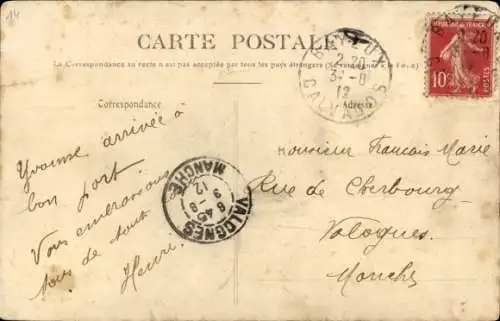 14
CARTE POSTALE
La Correspondance au recto n'est pas acceptée par tous les pays étrangers (Se renseigner à la Poste)
Correspondance
Adresse
Yvonne arrivée à
bon port
Vous embrassons
tous de tout
Henri.
Monsieur Francois Marie
Rue de Cherbourg
Valognes
Manche
BAYEUX
2 20
31 -8
12
CALVADOS
VALOGNES
6 45
9
12
MANCHE
10c
POSTES